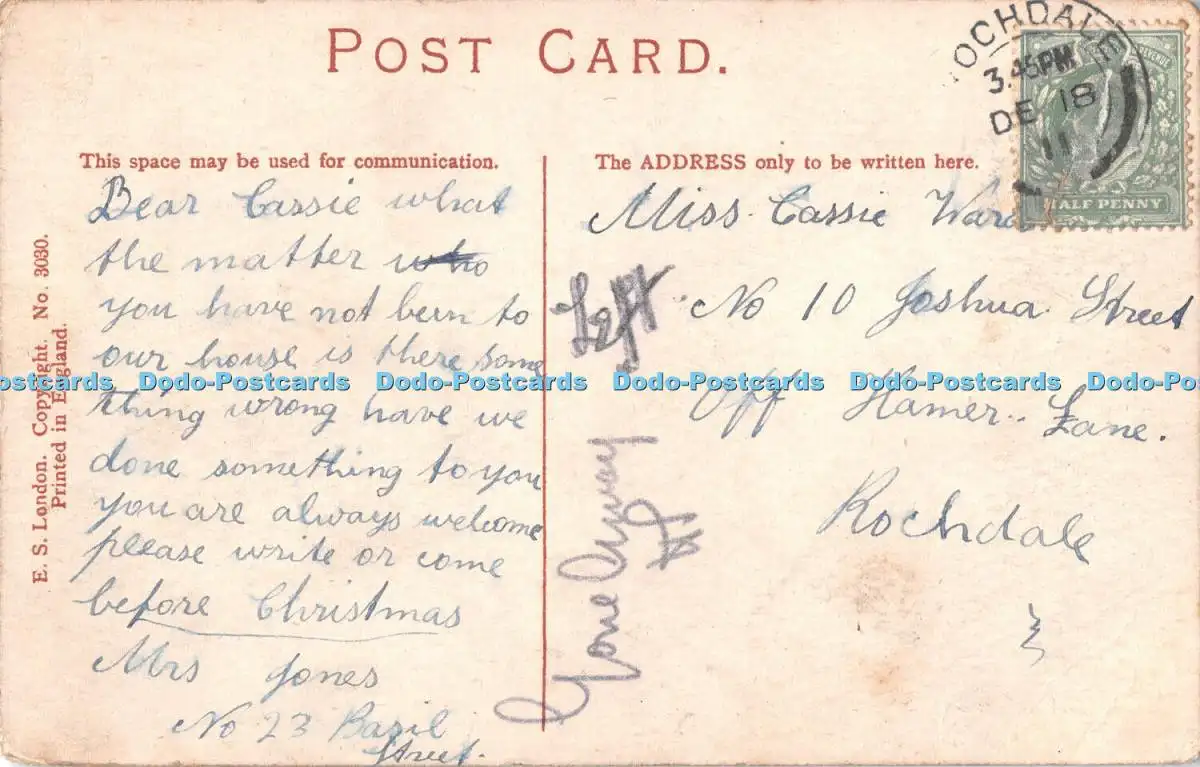 POST CARD.
ROCHDALE
3.45PM
DE 18
11
HALF PENNY
This space may be used for communication.
Dear Cassie what
the matter who
you have not been to
our house is there some
thing wrong have we
done something to you
you are always welcome
please write or come
before Christmas
Mrs Jones
No 23 Bazil
Street.
The ADDRESS only to be written here.
Miss. Cassie Ward
No 10 Joshua Street
Off Hamer.. Lane.
Rochdale
Left
Gone Away
E. S. London. Copyright. No. 3030.
Printed in England.
Dodo-Postcards Dodo-Postcards Dodo-Postcards Dodo-Postcards Dodo-Postcards